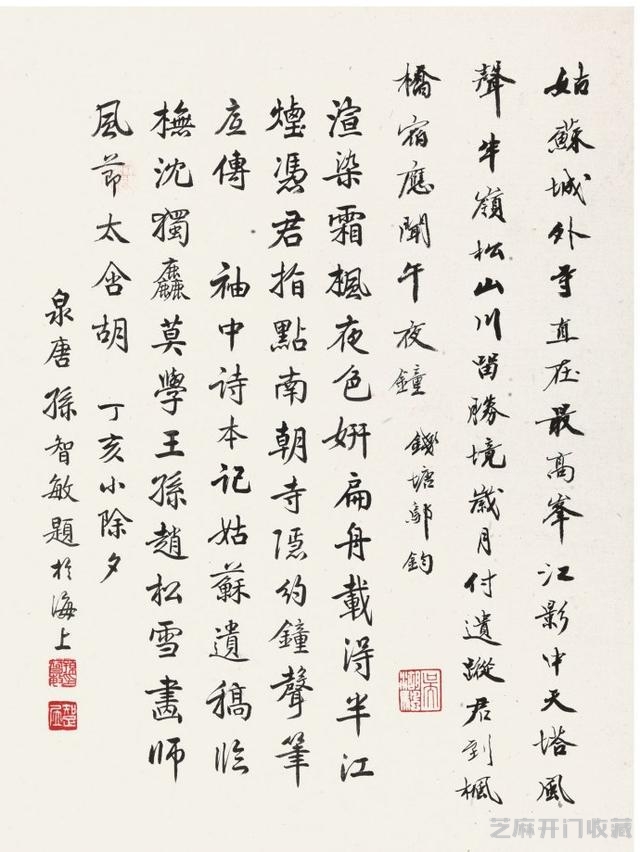 姑蘇城外寺直在最高峯江影中天塔風
聲半嶺松山川留勝境歲月付遺蹤君到楓
橋宿應聞午夜鐘 錢塘 鈞
渲染霜楓夜色妍扁舟載得半江
煙憑君指點南朝寺隱約鐘聲筆
底傳 袖中詩本記姑蘇遺稿臨
橅沈獨麤莫學王孫趙松雪畫師
風節太含胡 丁亥小除夕
泉唐孫智敏題於海上
芝麻开门收藏